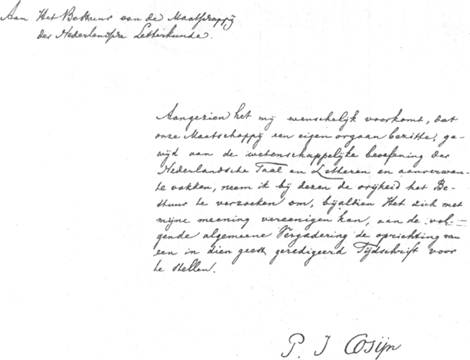 Aan Het Bestuur van de Maatschappij
der Nederlandsche Letterkunde.
Aangezien het mij wenschelijk voorkomt, dat
onze Maatschappij een eigen orgaan bezitte, ge-
wijd aan de wetenschappelijke beoefening der
Nederlandsche Taal en Letteren en aanverwan-
te vakken, neem ik bij dezen de vrijheid het Be-
stuur te verzoeken om, bijaldien Het zich met
mijne meening vereenigen kan, aan de vol-
gende algemeene Vergadering de oprichting van
een in dien geest geredigeerd Tijdschrift voor
te stellen.
P. J Cosijn